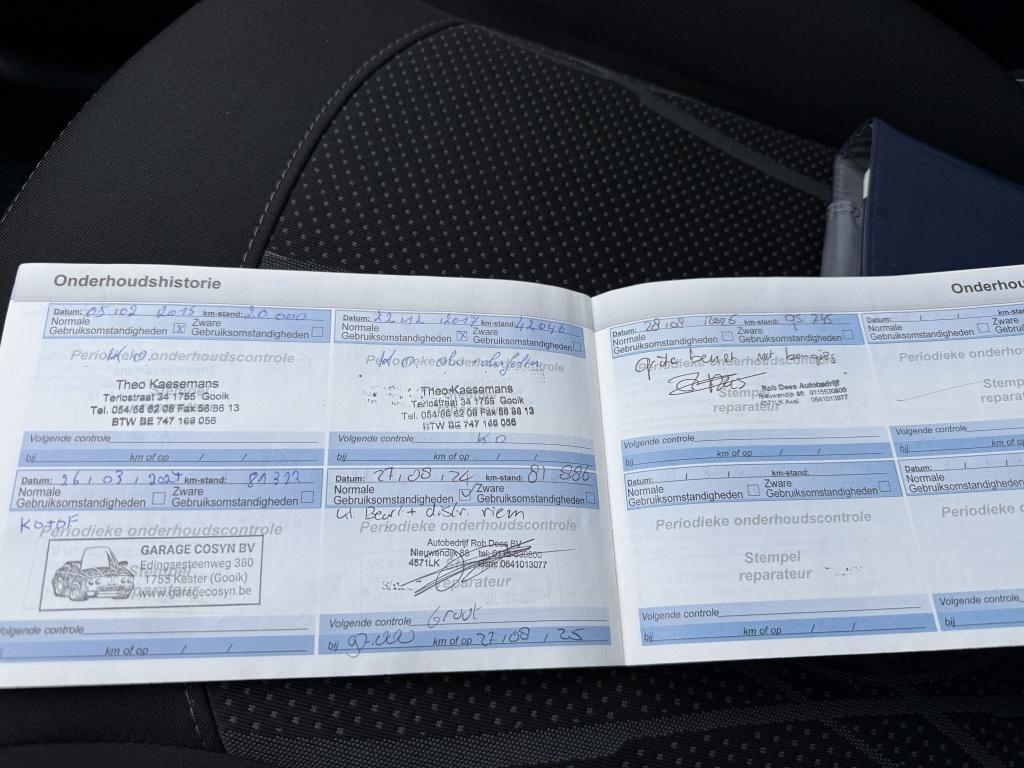 Onderhoudshistorie
Datum: 05 / 02 2015 km-stand: 20.000
Normale Gebruiksomstandigheden X Zware Gebruiksomstandigheden
K.O.
Periodieke onderhoudscontrole
Theo Kaesemans
Terlostraat 34 1755 Gooik
Tel. 054/56 62 08 Fax 56/86 13
BTW BE 747 166 056
Volgende controle
bij km of op / /
Datum: 22 12 2017 km-stand: 42046
Normale Gebruiksomstandigheden X Zware Gebruiksomstandigheden
K.O.
Periodieke onderhoudscontrole
Theo Kaesemans
Terlostraat 34 1755 Gooik
Tel. 054/56 62 08 Fax 56 86 13
BTW BE 747 166 056
Volgende controle K.O
bij km of op / /
Datum: 26 / 03 / 2024 km-stand: 81322
Normale Gebruiksomstandigheden Zware Gebruiksomstandigheden
KO+OF
Periodieke onderhoudscontrole
GARAGE COSYN BV
Edingsesteenweg 380
1755 Kester (Gooik)
www.garagecosyn.be
Volgende controle
bij km of op / /
Datum: 27 / 08 / 24 km-stand: 81.886
Normale Gebruiksomstandigheden Zware Gebruiksomstandigheden
kl. Beurt + distr. riem
Periodieke onderhoudscontrole
Autobedrijf Rob Dees BV
Nieuwendijk 88 tel: 0115-530800
4571LK 0641013077
reparateur
Volgende controle Groot
bij 97.000 km of op 27 / 08 / 25
Onderhou
Datum: 28 / 08 / 2025 km-stand: 95 745
Normale Gebruiksomstandigheden Zware Gebruiksomstandigheden
grote beurt met bougies
Periodieke onderhoudscontrole
Stempel
reparateur
Rob Dees Autobedrijf
Nieuwendijk 88 0115530800
4571LK Axel 0641013077
Volgende controle
bij km of op / /
Datum: / / km-stand:
Normale Gebruiksomstandigheden Zware Gebruiksomstandigheden
Periodieke onderhoudscontrole
Stempel
reparateur
Volgende controle
bij km of op / /
Datum: / / km-stan
Normale Gebruiksomstandigheden Zwar Gebru
Periodieke onde
Stemp
repara
Volgende controle
bij km of
Datum: / /
Normale Gebruiksomstandigheden
Periodieke o
Volgende controle
bij